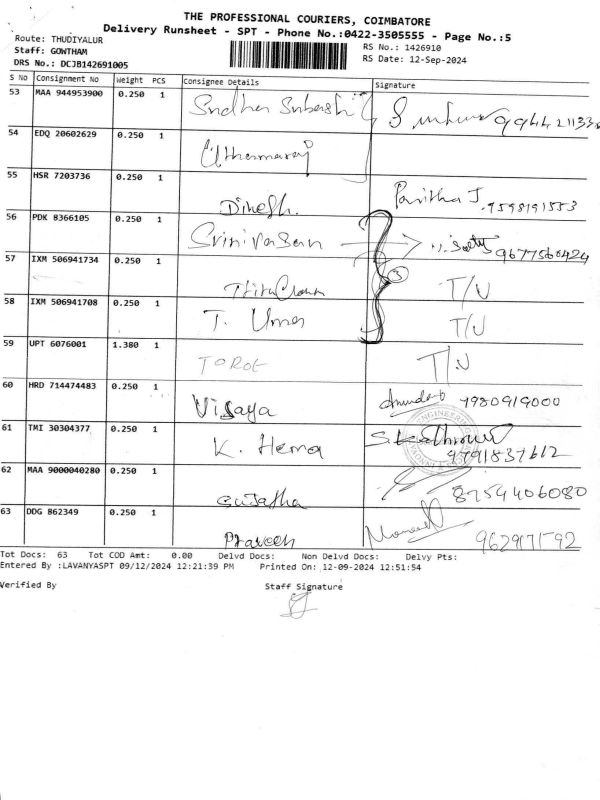 THE PROFESSIONAL COURIERS, COIMBATORE
Delivery Runsheet - SPT - Phone No.:0422-3505555 - Page No.:5
Route: THUDIYALUR
Staff: GOWTHAM
DRS No.: DCJB142691005
RS No.: 1426910
RS Date: 12-Sep-2024
S No Consignment No Weight PCS Consignee Details Signature
53 MAA 944953900 0.250 1 Sudhar
54 EDQ 20602629 0.250 1
55 HSR 7203736 0.250 1 Dinesh. Pavitha J. 9598191553
56 PDK 8366105 0.250 1 Srinivasan 9677560424
57 IXM 506941734 0.250 1 T/U
3
58 IXM 506941708 0.250 1 T. Umer T/U
59 UPT 6076001 1.380 1 TOROT T/U
60 HRD 714474483 0.250 1 Vijaya 7980919000
61 TMI 30304377 0.250 1 K. Hema 9791837612
62 MAA 9000040280 0.250 1 Sujatha 8754406080
63 DDG 862349 0.250 1 Praveen 9629171592
ENGINEERING
Tot Docs: 63 Tot COD Amt: 0.00 Delvd Docs: Non Delvd Docs: Delvy Pts:
Entered By :LAVANYASPT 09/12/2024 12:21:39 PM Printed On: 12-09-2024 12:51:54
Verified By Staff Signature